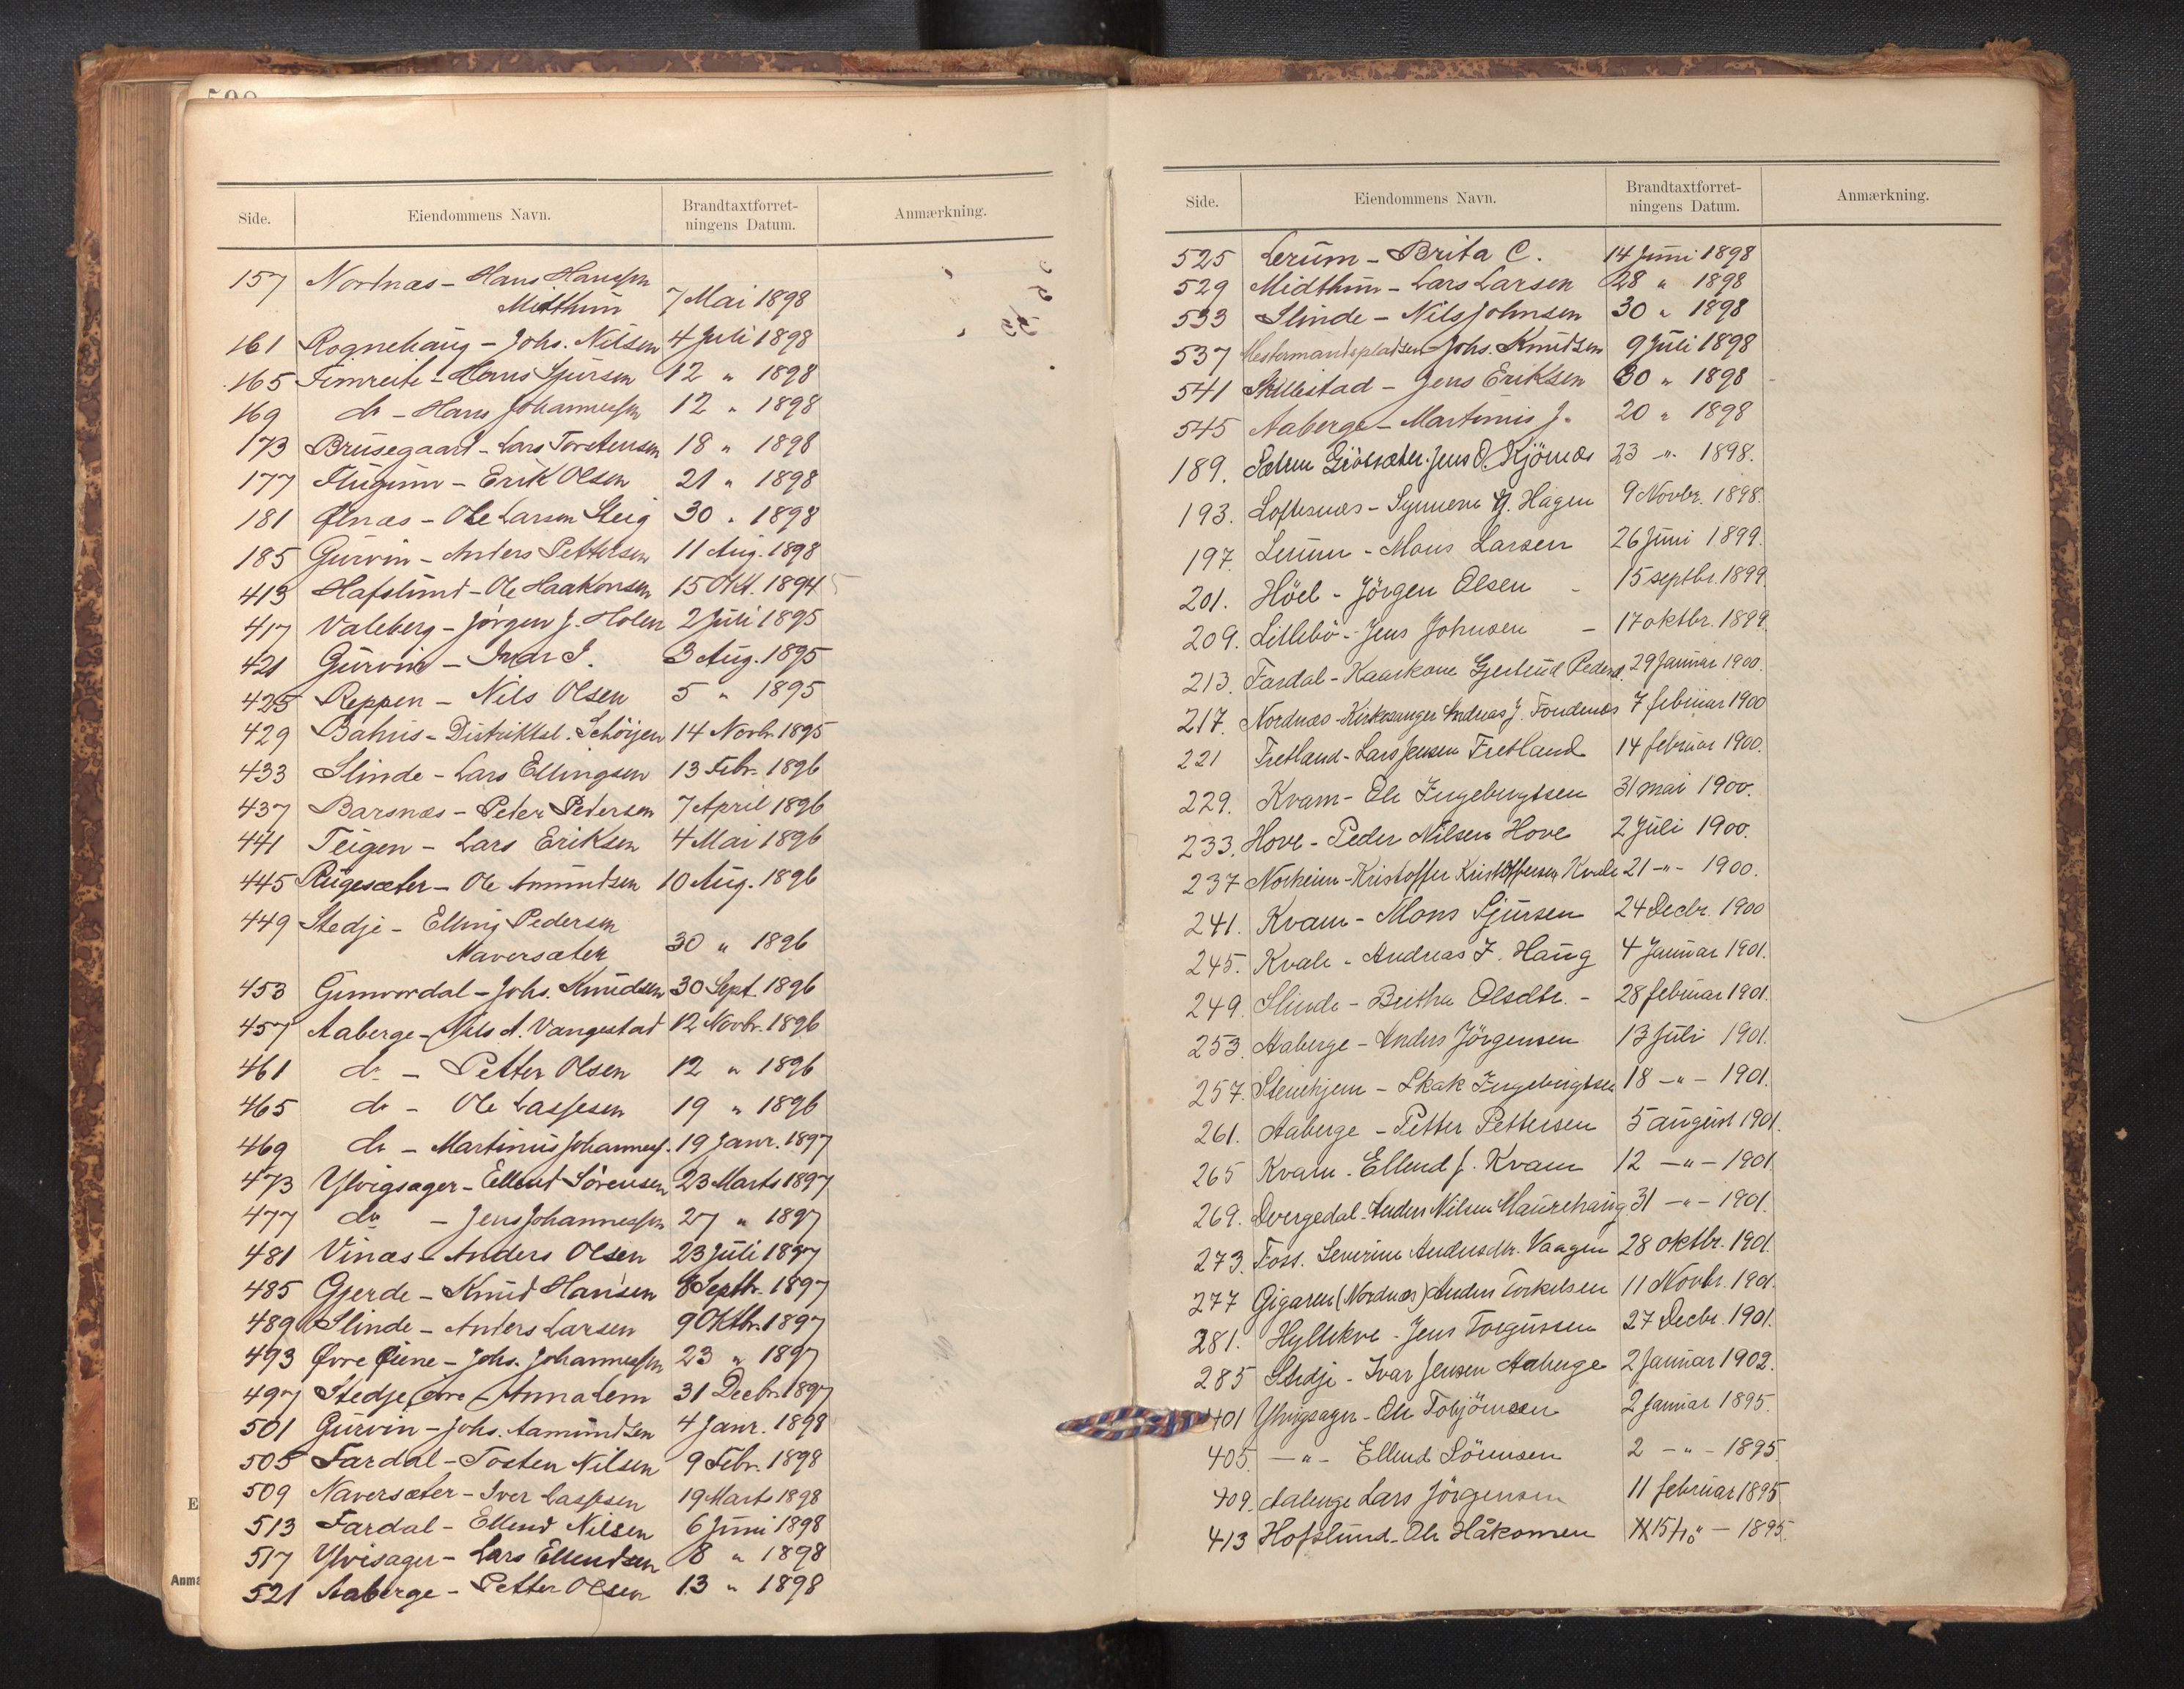 Side. Eiendommens Navn. Brandtaxtforret-ningens Datum. Anmærkning.
157 Nornæs - Hans Hanssen
Midthun 7 Mai 1898
161 Rognehaug - Johs. Nilsen 4 Juli 1898
165 Fimreite - Hans Sjursen 12 " 1898
169 do - Hans Johannessen 12 " 1898
173 Brusegaard - Lars Torstensen 18 " 1898
177 Flugum - Erik Olsen 21 " 1898
181 Ølnæs - Ole Larsen Steig 30 " 1898
185 Gurvin - Anders Pettersen 11 Aug. 1898
413 Hafslund - Ole Haakonsen 15 Okt. 1894
417 Valeberg - Jørgen J. Holen 2 Juli 1895
421 Gurvin - Ivar I. 3 Aug. 1895
425 Reppen - Nils Olsen 5 " 1895
429 Bahus - Distriktsl. Schöyen 14 Novb. 1895
433 Slinde - Lars Ellingsen 13 Febr. 1896
437 Barsnæs - Peter Pedersen 7 April 1896
441 Teigen - Lars Eriksen 4 Mai 1896
445 Rugesæter - Ole Amundsen 10 Aug. 1896
449 Stedje - Elling Pedersen
Naversæter 30 " 1896
453 Gunvordal - Johs. Knudsen 30 Sept. 1896
457 Aaberge - Nils A. Vangestad 12 Novbr. 1896
461 do - Petter Olsen 12 " 1896
465 do - Ole Lassesen 19 " 1896
469 do - Martinus Johanness. 19 Janr. 1897
473 Ylvigsager - Ellend Sörensen 23 Marts 1897
477 do - Jens Johannessen 27 " 1897
481 Vinæs - Anders Olsen 23 Juli 1897
485 Gjerde - Knud Hansen 8 Septbr. 1897
489 Slinde - Anders Larsen 9 Oktbr. 1897
493 Øvre Øiene - Johs. Johannessen 23 " 1897
497 Stedje øvre - Anna Lem 31 Decbr. 1897
501 Gurvin - Johs. Aamundsen 4 Janr. 1898
505 Fardal - Tosten Nilsen 9 Febr. 1898
509 Naversæter - Iver Lassesen 19 Marts 1898
513 Fardal - Ellend Nilsen 6 Juni 1898
517 Ylvisager - Lars Ellendsen 8 " 1898
521 Aaberge - Petter Olsen 13 " 1898
Side. Eiendommens Navn. Brandtaxtforret-ningens Datum. Anmærkning.
525 Lerum - Brita C. 14 Juni 1898
529 Midthun - Lars Larsen 28 " 1898
533 Slinde - Nils Johnsen 30 " 1898
537 Mestermandspladsen - Johs. Knudsen 9 Juli 1898
541 Skillestad - Jens Eriksen 30 " 1898
545 Aaberge - Martinus J. 20 " 1898
189. Sætren Jens O. Kjörnæs 23 -"- 1898.
193. Loftesnæs - Synneva Hagen 9 Novbr. 1898.
197. Lerum - Mons Larsen 26 Juni 1899.
201. Höel - Jörgen Olsen - 15 septbr. 1899.
209. Litlebö - Jens Johnsen - 17 oktbr. 1899.
213. Fardal - Kaarkone Gjertrud Pedersd. 29 Januar 1900.
217. Nordnæs - Kirkesanger Andreas J. Fondenæs 7 februar 1900
221 Fretland - Lars Jensen Fretland 14 februar 1900.
229. Kvam - Ole Ingebrigtsen 31 mai 1900.
233. Hove - Peder Nilsen Hove 2 Juli 1900.
237 Norheim - Kristoffer Kristoffersen Kvale 21 -"- 1900.
241. Kvam - Mons Sjursen 24 Decbr. 1900
245. Kvale - Andreas J. Haug 4 Januar 1901.
249. Slinde - Brithe Olsdtr. - 28 februar 1901.
253. Aaberge - Anders Jörgensen 13 Juli 1901.
257. Stenehjem - Skak Ingebrigtsen 18 -"- 1901.
261. Aaberge - Petter Pettersen 5 august 1901.
265 Kvam - Ellend J. Kvam 12 -"- 1901
269. Dvergedal - Anders Nilsen Maurehaug 31 -"- 1901.
273. Foss. Severine Andersdtr. Vaagen 28 oktbr. 1901.
277 Gigaren (Nordnæs) Anders Torkelsen 11 Novbr. 1901.
281. Hyllekve - Jens Torgussen 27 Decbr. 1901.
285 Stedje - Ivar Jensen Aaberge 2 Januar 1902.
401 Ylvigsager - Ole Tobjörnsen 2 Januar 1895.
405. -"- Ellend Sörensen 2 -"- 1895.
409. Aaberge Lars Jörgensen 11 februar 1895
413 Hofslund - Ole Håkonsen 15/10 - 1895.